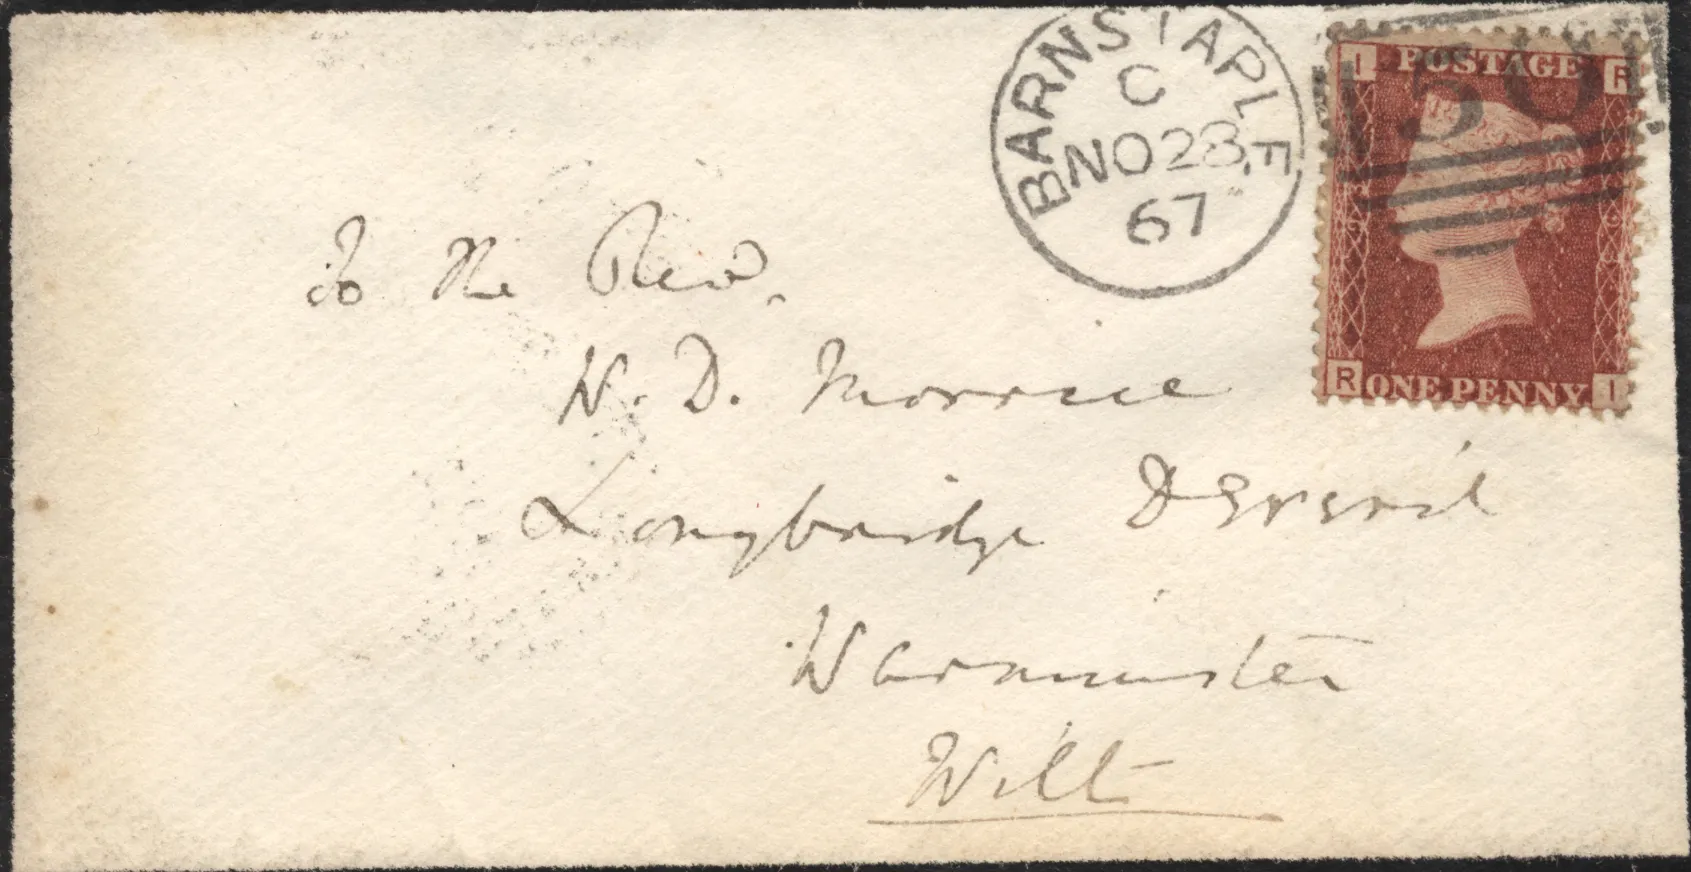 BARNSTAPLE
C
NO 28
67
I POSTAGE R
R ONE PENNY I
To the Revd.
W. D. Morrice
Longbridge Deveril
Warminster
Wilts